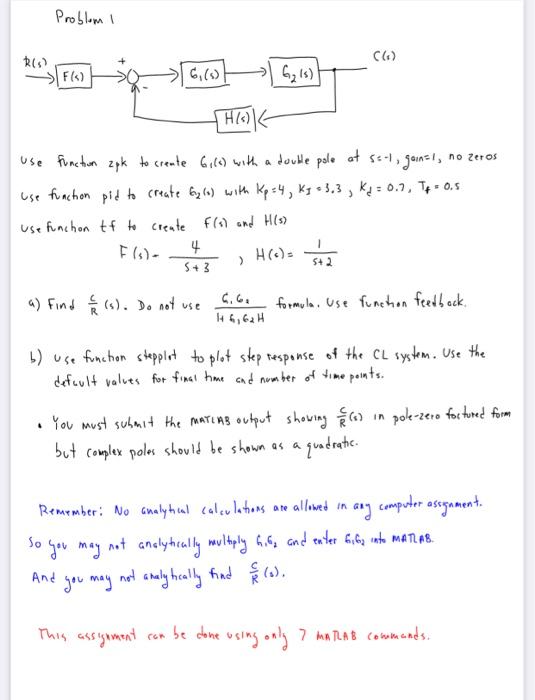 Problem 1
R(s)
F(s)
+
-
G₁(s)
G₂(s)
C(s)
H(s)
Use function zpk to create G₁(s) with a double pole at s=-1, gain=1, no zeros
Use function pid to create G₂(s) with Kp=4, KI=3.3, Kd=0.7, Tf=0.5
Use function tf to create F(s) and H(s)
F(s)= 4/(s+3), H(s)= 1/(s+2)
a) Find C/R (s). Do not use G₁G₂/(1+G₁G₂H) formula. Use function feedback.
b) use function stepplot to plot step response of the CL system. Use the
default values for final time and number of time points.
• You must submit the MATLAB output showing C/R(s) in pole-zero factored form
but complex poles should be shown as a quadratic.
Remember: No analytical calculations are allowed in any computer assignment.
So you may not analytically multiply G₁G₂ and enter G₁G₂ into MATLAB.
And you may not analytically find C/R(s).
This assignment can be done using only 7 MATLAB commands.